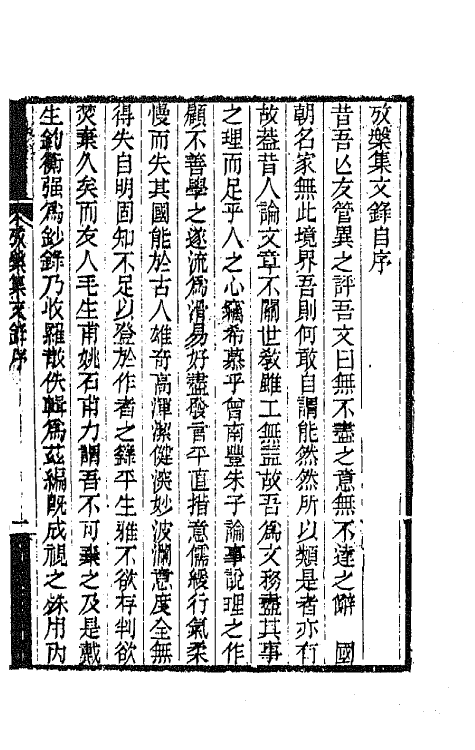 攷槃集文錄自序
昔吾亾友管異之評吾文曰無不盡之意無不達之辭　國
朝名家無此境界吾則何敢自謂能然然所以類是者亦有
故葢昔人論文章不關世敎雖工無益故吾爲文務盡其事
之理而足乎人之心竊希慕乎曾南豐朱子論事說理之作
顧不善學之遂流爲滑易好盡發言平直措意儒緩行氣柔
慢而失其國能於古人雄奇高渾潔健深妙波瀾意度全無
得失自明固知不足以登於作者之錄平生雅不欲存判欲
焚棄久矣而友人毛生甫姚石甫力謂吾不可棄之及是戴
生鈞衡强爲鈔錄乃收羅散佚輯爲茲編旣成視之姝用内
攷槃集文錄序
一